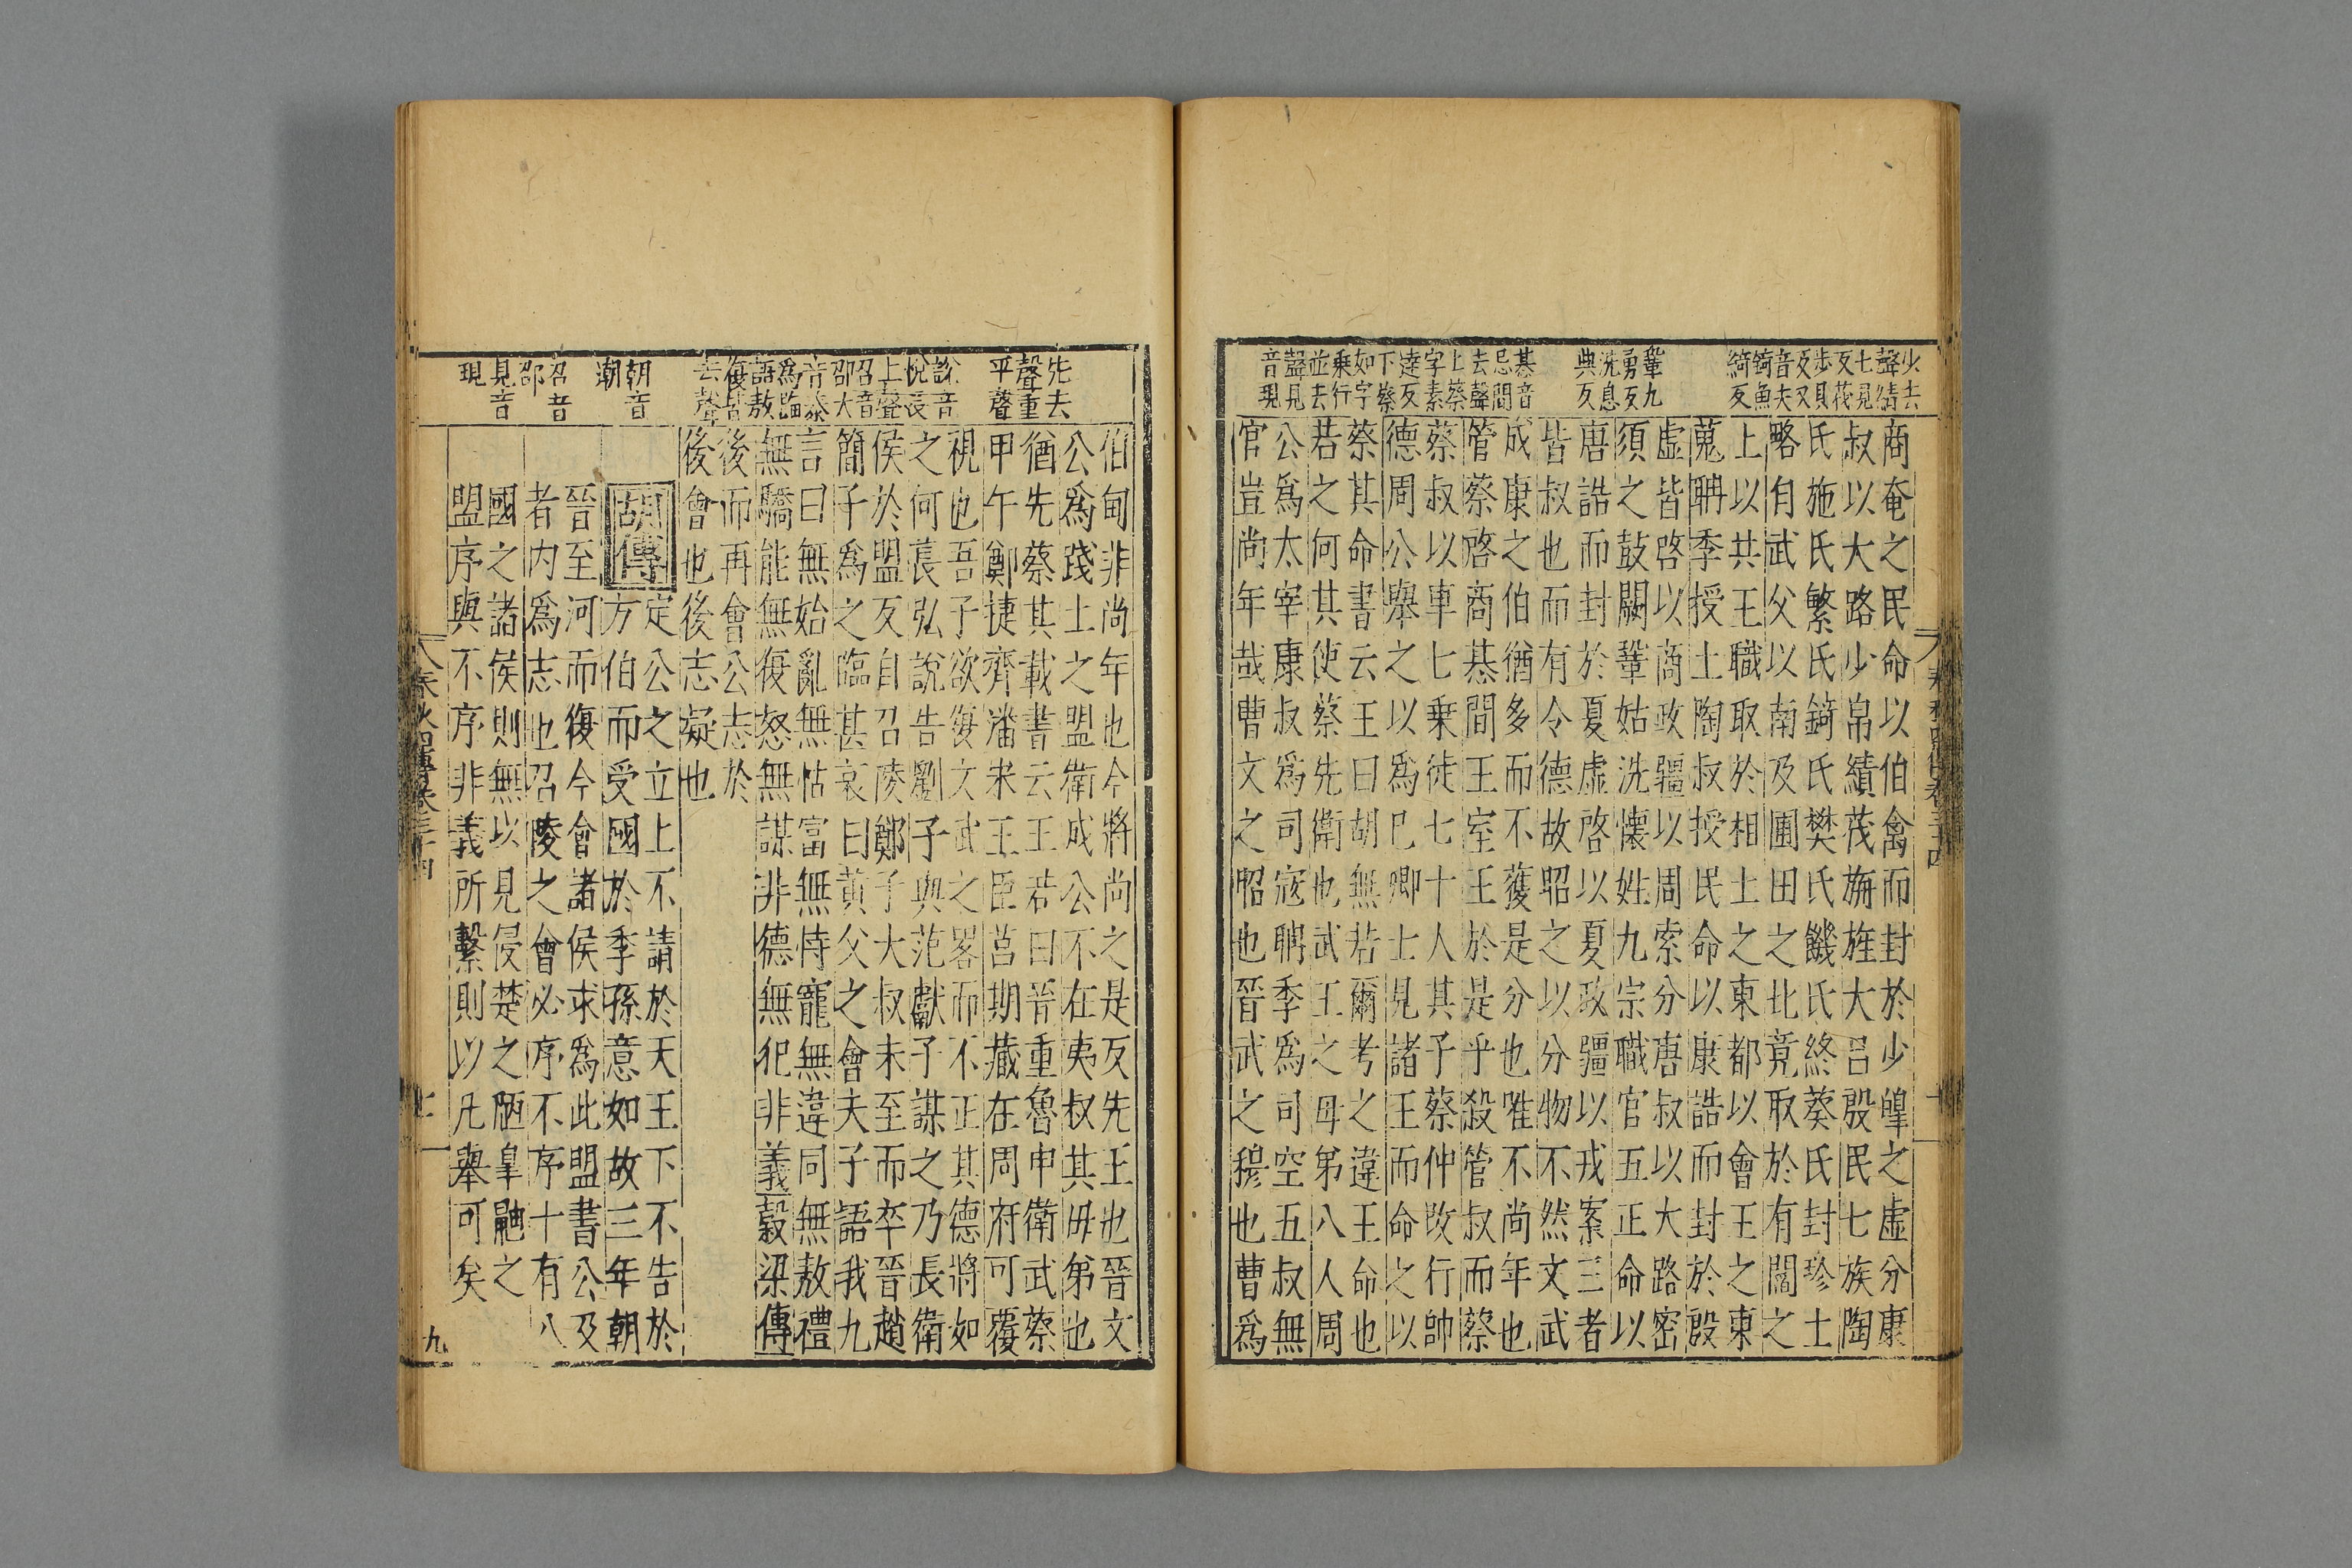 少去
聲綪
七見
反茷
步貝
反又
音夫
錡魚
綺反
鞏九
勇反
洗息
典反
惎音
忌間
去聲
上蔡
字素
達反
下蔡
如字
乗行
並去
聲見
音現
商奄之民命以伯禽而封於少皥之虛分康
叔以大路少帛綪茷旃旌大呂殷民七族陶
氏施氏繁氏錡氏樊氏饑氏終葵氏封珍土
略自武父以南及圃田之北竟取於有閻之
上以共王職取於相土之東都以會王之東
蒐聃季授土陶叔授民命以康誥而封於殷
虛皆啓以商政疆以周索分唐叔以大路密
須之鼓闕鞏姑洗懷姓九宗職官五正命以
唐誥而封於夏虛啓以夏政疆以戎案三者
皆叔也而有令德故昭之以分物不然文武
成康之伯猶多而不獲是分也唯不尚年也
管蔡啓商惎間王室王於是乎殺管叔而蔡
蔡叔以車七乗徒七十人其子蔡仲改行帥
德周公舉之以爲巳卿士見諸王而命之以
蔡其命書云王曰胡無若爾考之違王命也
若之何其使蔡先衛也武王之母弟八人周
公爲太宰康叔爲司寇聃季爲司空五叔無
官豈尚年哉曹文之昭也晉武之穆也曹爲
先去
聲重
平聲
說音
悅萇
上聲
召音
邵大
音泰
爲臨
語敖
復皆
去聲
朝音
潮
召音
邵
見音
現
伯甸非尚年也今將尚之是反先王也晉文
公爲踐土之盟衛成公不在夷叔其毋弟也
猶先蔡其載書云王若曰晉重魯申衛武蔡
甲午鄭捷齊潘宋王臣莒期藏在周府可覆
視也吾子欲復文武之畧而不正其德將如
之何萇弘說告劉子與范獻子謀之乃長衛
侯於盟反自召陵鄭子大叔未至而卒晉趙
簡子爲之臨甚哀曰黃父之會夫子語我九
言曰無始亂無怙富無恃寵無違同無敖禮
無驕能無復怒無謀非德無犯非義穀梁傳
後而再會公志於
後會也後志疑也
胡傳
定公之立上不請於天王下不告於
方伯而受國於季孫意如故三年朝
晉至河而復今會諸侯求爲此盟書公及
者内爲志也召陵之會必序不序十有八
國之諸侯則無以見侵楚之陋皐鼬之
盟序與不序非義所繫則以凡舉可矣
九